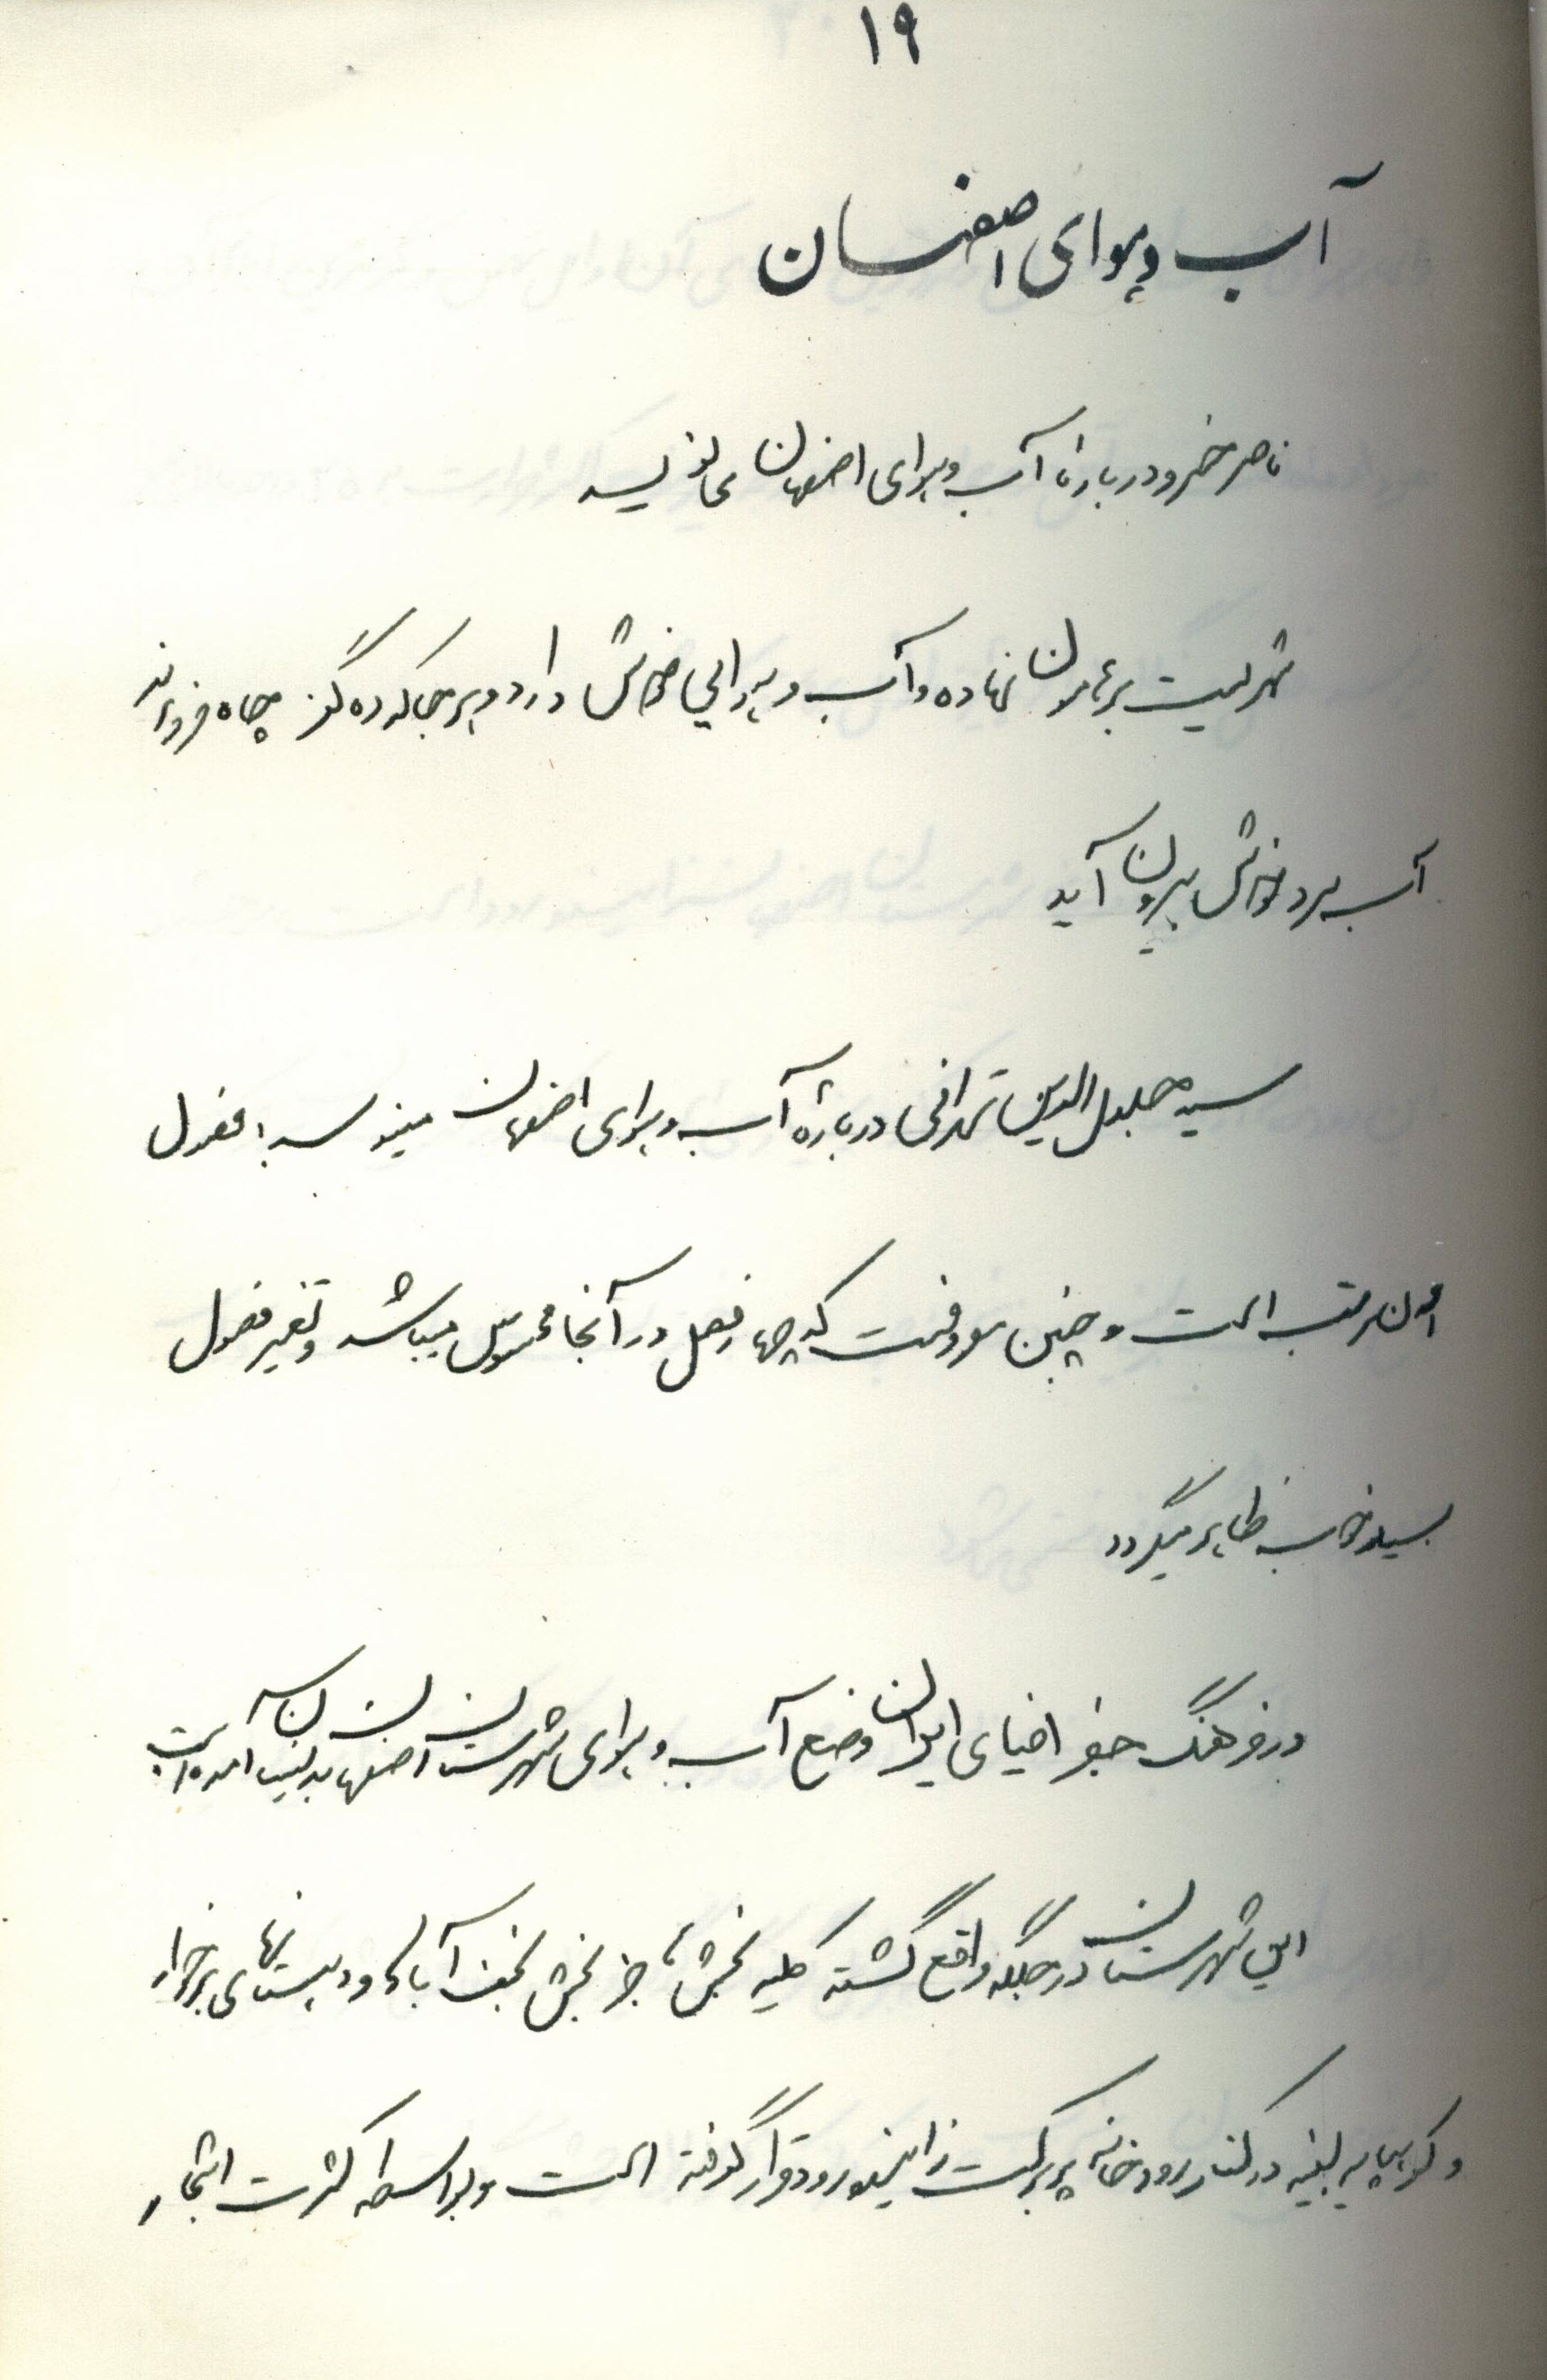 ۱۹
آب و هوای اصفهان
ناصر خسرو درباره آب و هوای اصفهان می نویسد
شهریست بر هامون نهاده و آب و هوایی خوش دارد و هر جا که ده گز چاه فرو برند
آب سرد خوش بیرون آید
سید جلال الدین تهرانی درباره آب و هوای اصفهان مینویسد فصول
اصفهان مرتب است و چنین معروفست که چهار فصل در آنجا محسوس میباشد و تغییر فصول
بسیار خوب ظاهر میگردد
در فرهنگ جغرافیای ایران وضع آب و هوای شهرستان اصفهان بدینسان آمده است
این شهرستان در جلگه واقع گشته کلیه بخش ها جز بخش نجف آباد و دهستانهای برخوار
و کوهپایه بقیه در کنار رودخانه پر برکت زاینده رود قرار گرفته است و بواسطه کثرت اشجار